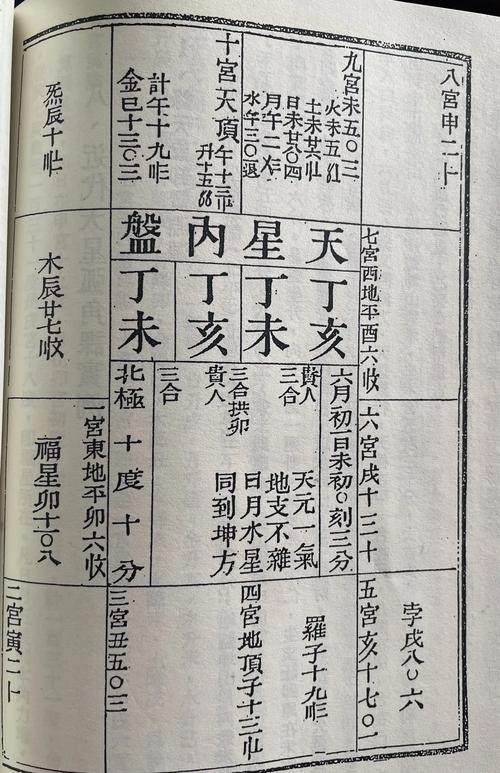 八宮申二十
九宮未五〇三
火未五
土未廿
日未廿八〇四
月午二
水午三〇退
十宮天頂
午十三
升十五
計午十九
金巳十三〇三
炁辰十
天星內盤
丁亥
丁未
丁亥
丁未
七宮酉地平酉六
木辰廿七
六月初一日未初〇刻三分
貴人
三合
三合拱卯
貴人
三合
天元一氣
地支不雜
日月水星
同到坤方
北極十度十分
六宮戌十三十
一宮東地平卯六
福星卯十一〇八
孛戌八〇六
五宮亥十七〇一
羅子十九
四宮地頂子十三
三宮丑五〇三
二宮寅二十